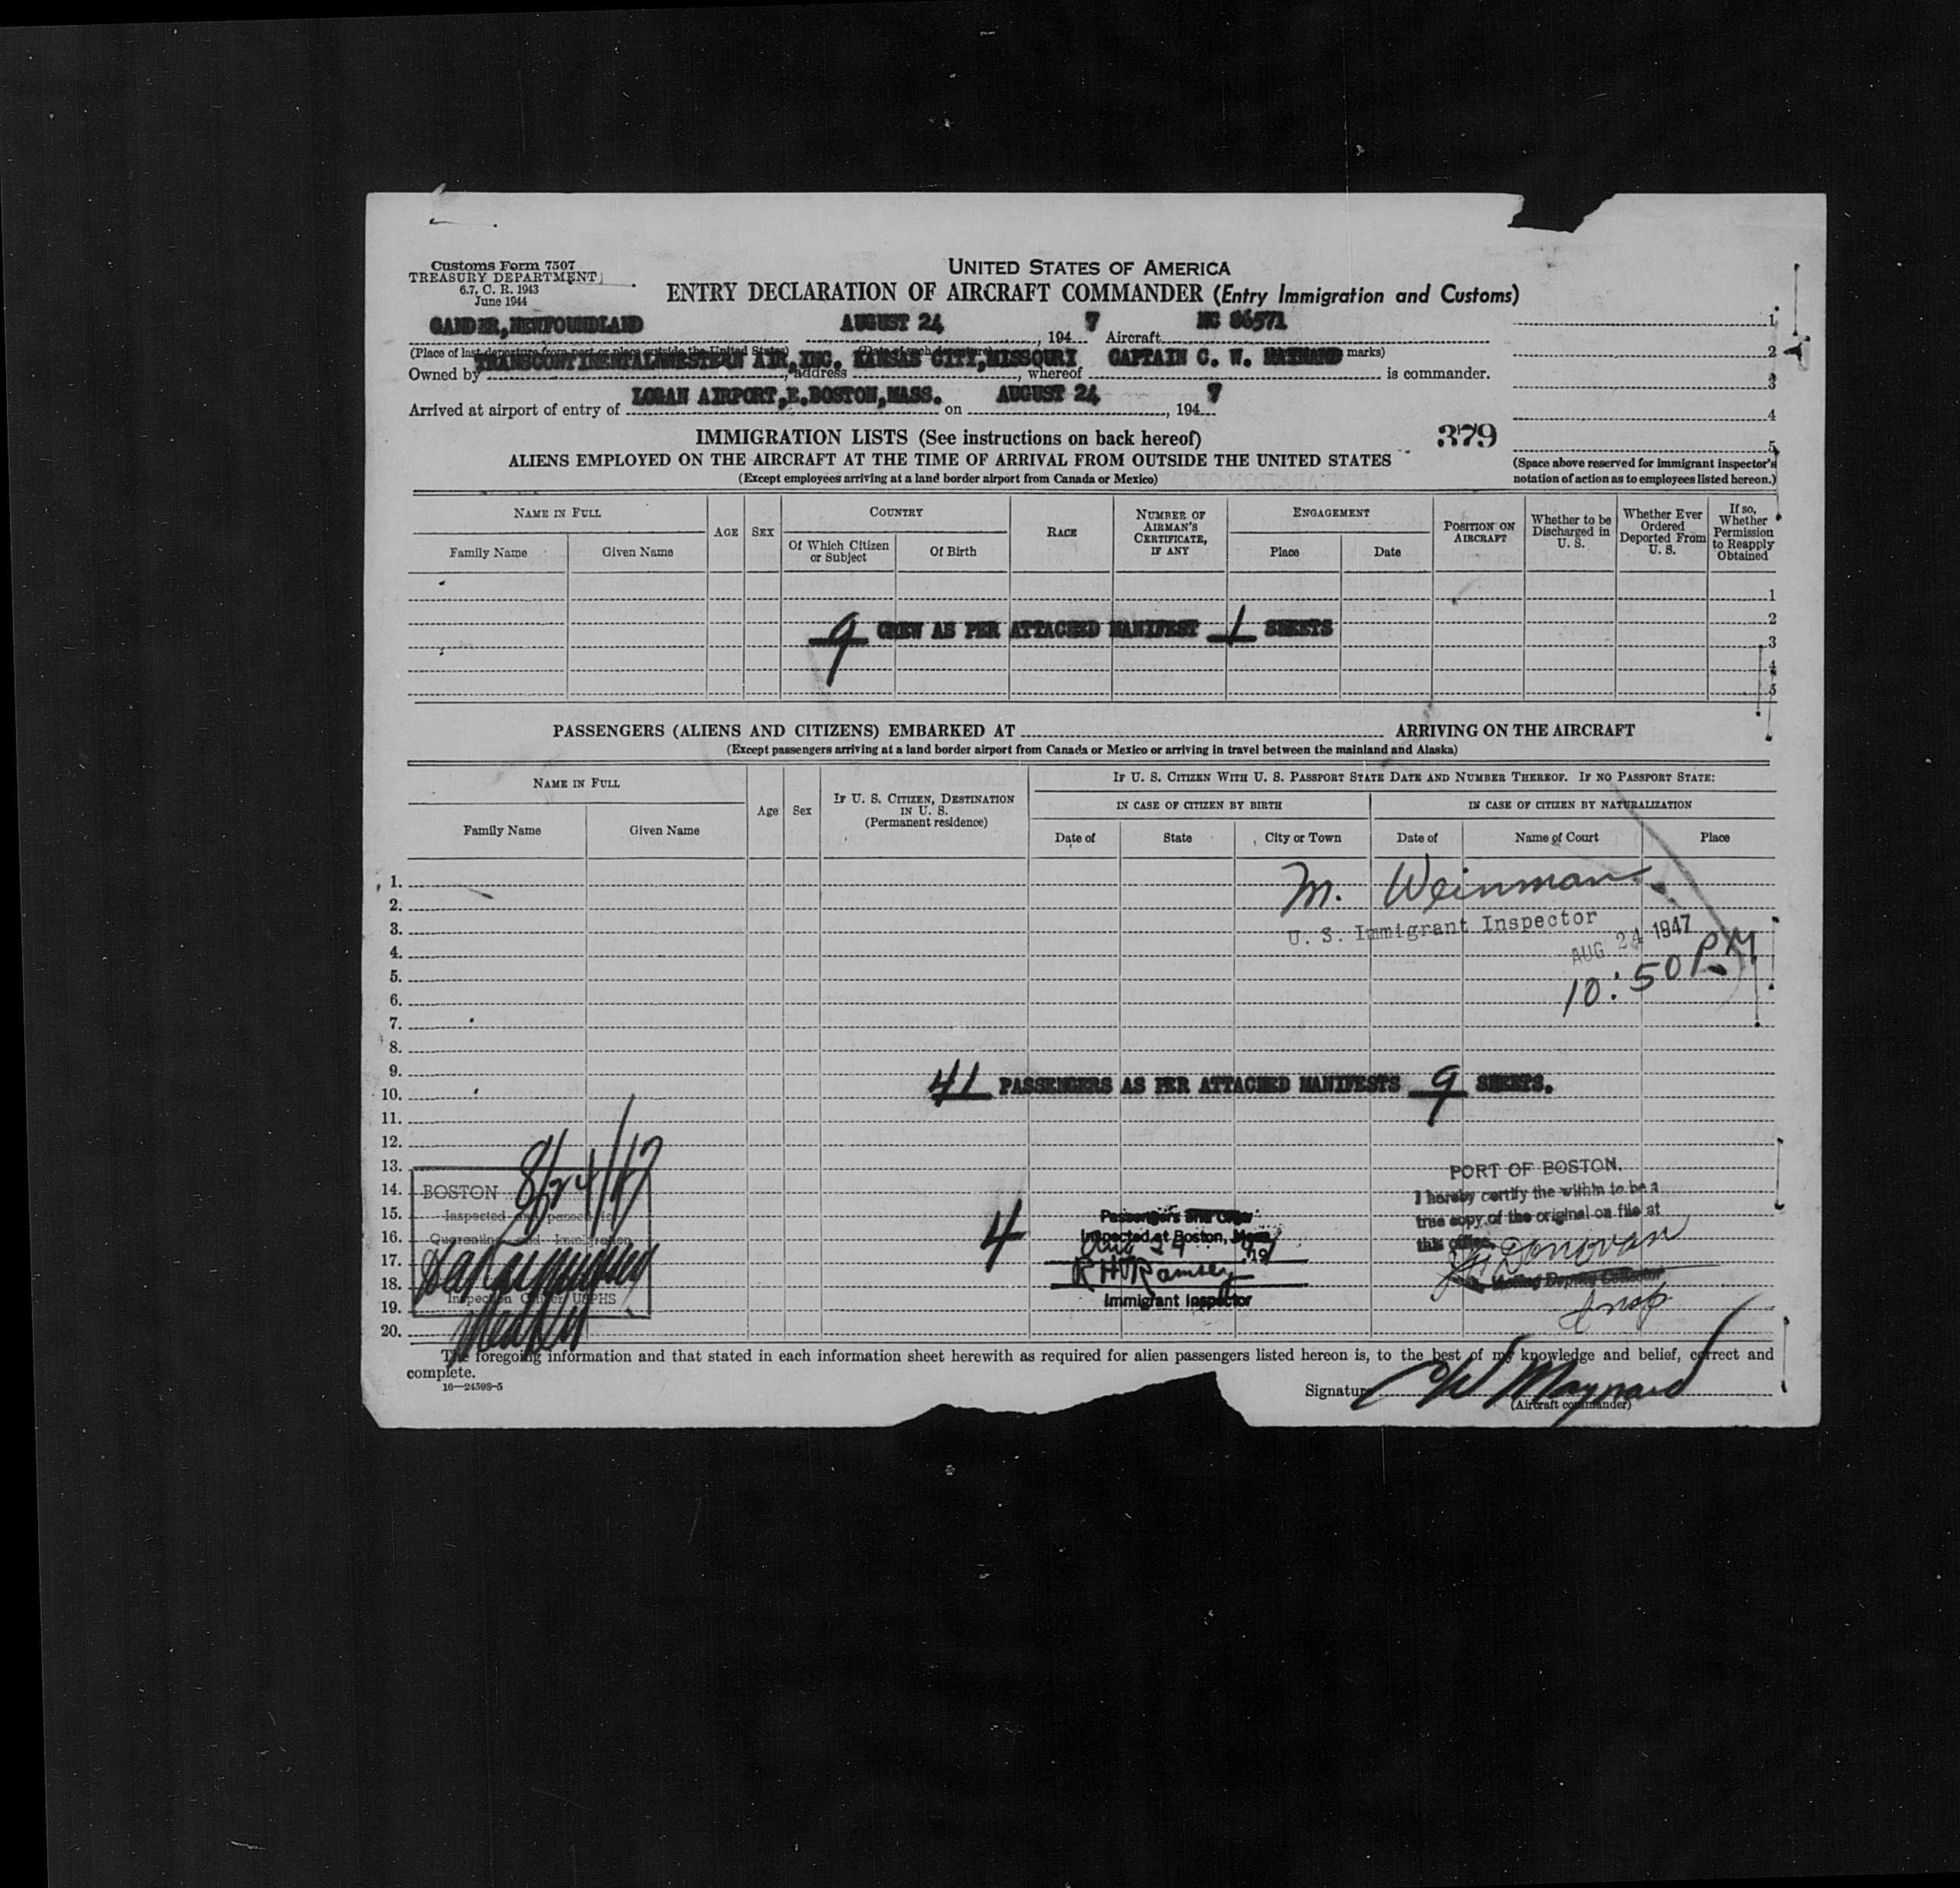 Customs Form 7507
TREASURY DEPARTMENT
6.7, C. R. 1943
June 1944
UNITED STATES OF AMERICA
ENTRY DECLARATION OF AIRCRAFT COMMANDER (Entry Immigration and Customs)
GANDER, NEWFOUNDLAND AUGUST 24, 1947 Aircraft NC 86571
(Place of last departure from port or place outside the United States) marks)
Owned by TRANSCONTINENTAL&WESTERN AIR, INC. address KANSAS CITY, MISSOURI, whereof CAPTAIN C. W. MAYNARD is commander.
Arrived at airport of entry of LOGAN AIRPORT, E. BOSTON, MASS. on AUGUST 24, 1947
1
2
3
4
5
(Space above reserved for immigrant inspector's
notation of action as to employees listed hereon.)
379
IMMIGRATION LISTS (See instructions on back hereof)
ALIENS EMPLOYED ON THE AIRCRAFT AT THE TIME OF ARRIVAL FROM OUTSIDE THE UNITED STATES
(Except employees arriving at a land border airport from Canada or Mexico)
NAME IN FULL
Family Name
Given Name
AGE
SEX
COUNTRY
Of Which Citizen or Subject
Of Birth
RACE
NUMBER OF AIRMAN'S CERTIFICATE, IF ANY
ENGAGEMENT
Place
Date
POSITION ON AIRCRAFT
Whether to be Discharged in U. S.
Whether Ever Ordered Deported From U. S.
If so, Whether Permission to Reapply Obtained
1
2
9 CREW AS PER ATTACHED MANIFEST 1 SHEETS
3
4
5
PASSENGERS (ALIENS AND CITIZENS) EMBARKED AT ARRIVING ON THE AIRCRAFT
(Except passengers arriving at a land border airport from Canada or Mexico or arriving in travel between the mainland and Alaska)
NAME IN FULL
Family Name
Given Name
Age
Sex
IF U. S. CITIZEN, DESTINATION IN U. S.
(Permanent residence)
IF U. S. CITIZEN WITH U. S. PASSPORT STATE DATE AND NUMBER THEREOF. IF NO PASSPORT STATE:
IN CASE OF CITIZEN BY BIRTH
IN CASE OF CITIZEN BY NATURALIZATION
Date of
State
City or Town
Date of
Name of Court
Place
1.
2.
3.
4.
5.
6.
7.
8.
9.
10.
11.
12.
13.
14.
15.
16.
17.
18.
19.
20.
M. Weinman
U. S. Immigrant Inspector
AUG 24 1947
10:50 PM
41 PASSENGERS AS PER ATTACHED MANIFESTS 9 SHEETS.
8/24/47
BOSTON
Inspected and passed for
Quarantine and Immigration
Inspection Officer USPHS
4
Passengers and Crew
Inspected at Boston, Mass.
Aug 24 19
R H Ramsey
Immigrant Inspector
PORT OF BOSTON.
I hereby certify the within to be a
true copy of the original on file at
this office.
Donovan
Acting Deputy Collector
Insp
The foregoing information and that stated in each information sheet herewith as required for alien passengers listed hereon is, to the best of my knowledge and belief, correct and
complete.
16—24598-5
Signature C W Maynard
(Aircraft commander)